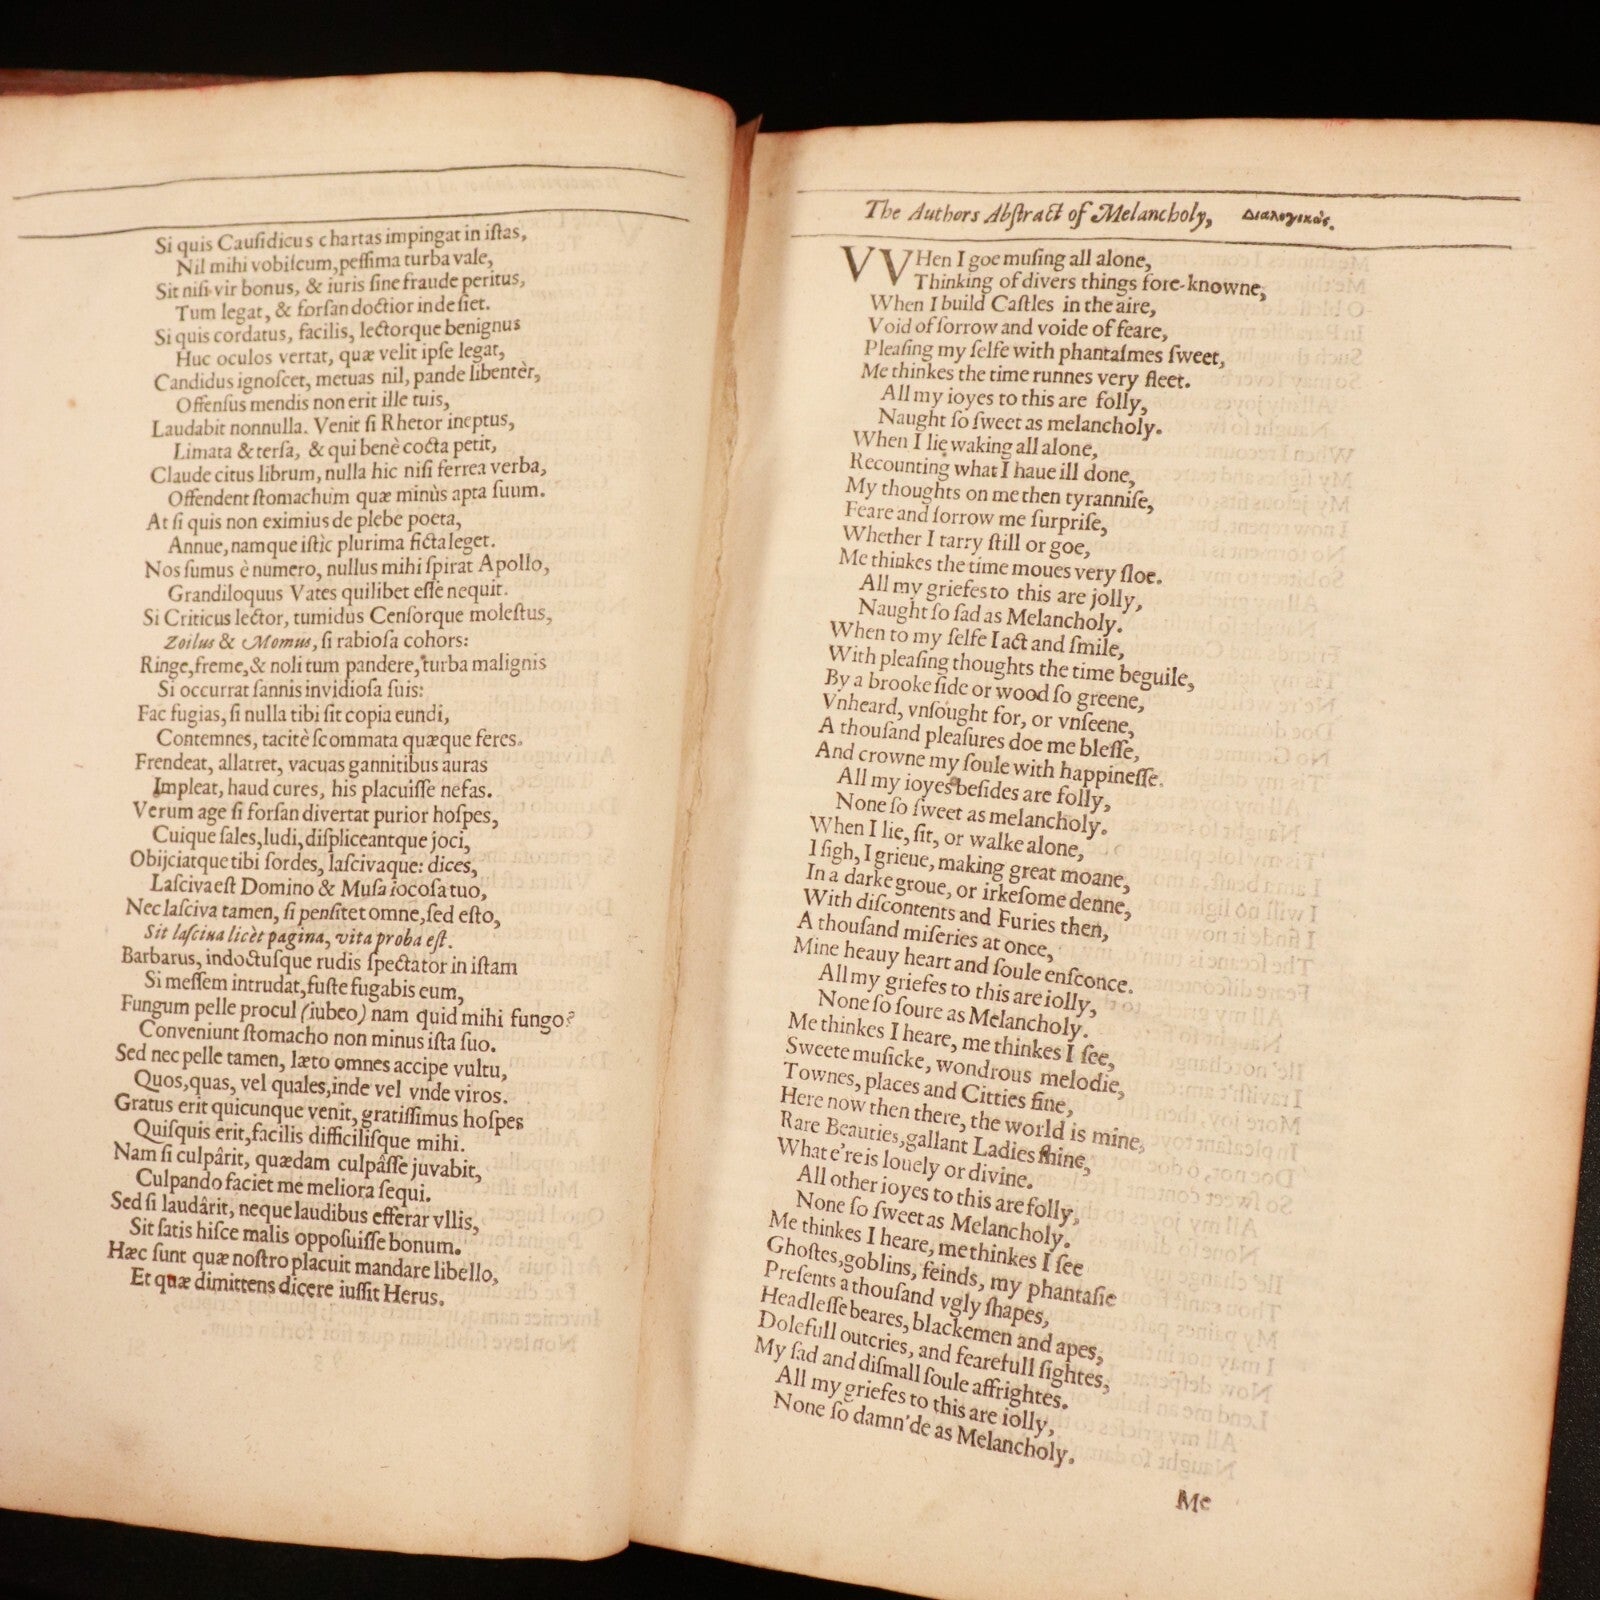 Si quis Causidicus chartas impingat in istas,
Nil mihi vobiscum, pessima turba vale,
Sit nisi vir bonus, & iuris sine fraude peritus,
Tum legat, & forsan doctior inde siet.
Si quis cordatus, facilis, lectorque benignus
Huc oculos vertat, quæ velit ipse legat,
Candidus ignoscet, metuas nil, pande libentèr,
Offensus mendis non erit ille tuis,
Laudabit nonnulla. Venit si Rhetor ineptus,
Limata & tersa, & qui benè cocta petit,
Claude citus librum, nulla hic nisi ferrea verba,
Offendent stomachum quæ minùs apta suum.
At si quis non eximius de plebe poeta,
Annue, namque istic plurima ficta leget.
Nos sumus è numero, nullus mihi spirat Apollo,
Grandiloquus Vates quilibet esse nequit.
Si Criticus lector, tumidus Censorque molestus,
Zoilus & Momus, si rabiosa cohors:
Ringe, freme, & noli tum pandere, turba malignis
Si occurrat sannis invidiosa suis:
Fac fugias, si nulla tibi sit copia eundi,
Contemnes, tacitè scommata quæque feres.
Frendeat, allatret, vacuas gannitibus auras
Impleat, haud cures, his placuisse nefas.
Verum age si forsan divertat purior hospes,
Cuique sales, ludi, displiceantque joci,
Obijciatque tibi sordes, lascivaque: dices,
Lasciva est Domino & Musa iocosa tuo,
Nec lasciva tamen, si pensitet omne, sed esto,
Sit lasciua licèt pagina, vita proba est.
Barbarus, indoctusque rudis spectator in istam
Si messem intrudat, fuste fugabis eum,
Fungum pelle procul (iubeo) nam quid mihi fungo?
Conveniunt stomacho non minus ista suo.
Sed nec pelle tamen, læto omnes accipe vultu,
Quos, quas, vel quales, inde vel vnde viros.
Gratus erit quicunque venit, gratissimus hospes
Quisquis erit, facilis difficilisque mihi.
Nam si culpârit, quædam culpâsse juvabit,
Culpando faciet me meliora sequi.
Sed si laudârit, neque laudibus efferar vllis,
Sit satis hisce malis opposuisse bonum.
Hæc sunt quæ nostro placuit mandare libello,
Et quæ dimittens dicere iussit Herus.
The Authors Abstract of Melancholy, Διαλογικῶς.
VVHen I goe musing all alone,
Thinking of divers things fore-knowne,
When I build Castles in the aire,
Void of sorrow and voide of feare,
Pleasing my selfe with phantasmes sweet,
Me thinkes the time runnes very fleet.
All my ioyes to this are folly,
Naught so sweet as melancholy.
When I lie waking all alone,
Recounting what I haue ill done,
My thoughts on me then tyrannise,
Feare and sorrow me surprise,
Whether I tarry still or goe,
Me thinkes the time moues very sloe.
All my griefes to this are jolly,
Naught so sad as Melancholy.
When to my selfe I act and smile,
With pleasing thoughts the time beguile,
By a brooke side or wood so greene,
Vnheard, vnsought for, or vnseene,
A thousand pleasures doe me blesse,
And crowne my soule with happinesse.
All my ioyes besides are folly,
None so sweet as melancholy.
When I lie, sit, or walke alone,
I sigh, I grieue, making great moane,
In a darke groue, or irkesome denne,
With discontents and Furies then,
A thousand miseries at once,
Mine heauy heart and soule ensconce.
All my griefes to this are iolly,
None so soure as Melancholy.
Me thinkes I heare, me thinkes I see,
Sweete musicke, wondrous melodie,
Townes, places and Citties fine,
Here now then there, the world is mine,
Rare Beauties, gallant Ladies shine,
What e're is louely or divine.
All other ioyes to this are folly,
None so sweet as Melancholy.
Me thinkes I heare, me thinkes I see
Ghostes, goblins, feinds, my phantasie
Presents a thousand vgly shapes,
Headlesse beares, blackemen and apes,
Dolefull outcries, and fearefull sightes,
My sad and dismall soule affrightes.
All my griefes to this are iolly,
None so damn'de as Melancholy.
Me